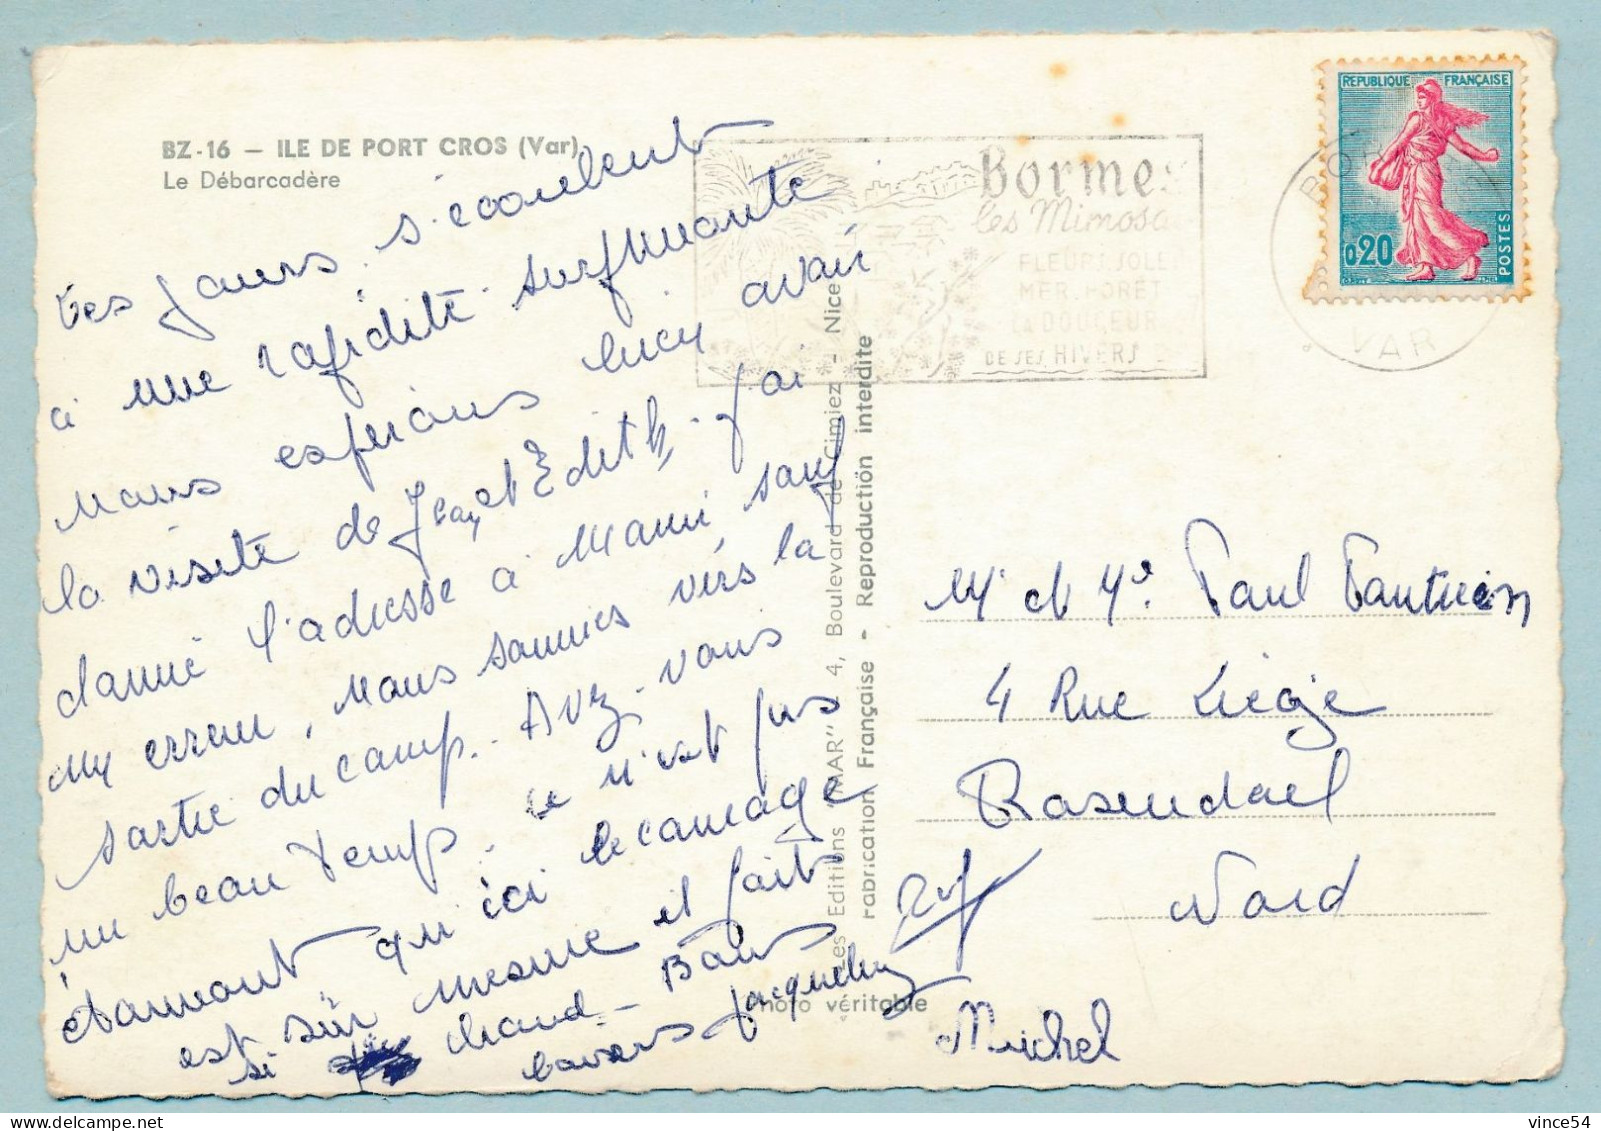 BZ-16 — ILE DE PORT CROS (Var)
Le Débarcadère
Les jours s'écoulent
à une rapidité surprenante
nous espérions bien avoir
la visite de Jean et Edith, j'ai
donné l'adresse à Mami, sauf
erreur, nous sommes vers la
sortie du camp. Avez-vous
un beau temps. ce n'est pas
étonnant qu'ici le camage
est sûr mesme il fait
si chaud - Bons
baisers Jacqueline
Michel
Les Editions "MAR" 4, Boulevard de Cimiez - Nice
Fabrication Française - Reproduction interdite
Photo véritable
Bormes
les Mimosas
FLEURS SOLEIL
MER FORÊT
LA DOUCEUR
DE SES HIVERS
REPUBLIQUE FRANÇAISE
0,20
POSTES
BO
VAR
Mr et Me. Paul
4 Rue Liège
Rosendael
Nord
vince54